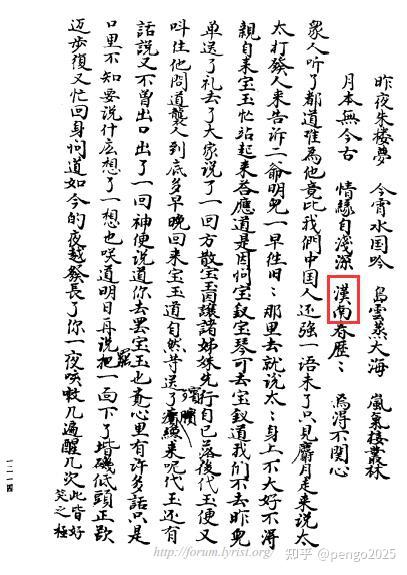 昨夜朱楼夢　今宵水国吟　島雲蒸大海　嵐氣接叢林
月本無今古　情緣自淺深　漢南春歴〻　焉得不關心
衆人听了都道难為他竟比我們中国人还強一语未了只見麝月走来说太
太打發人来告訴二爺明兒一早往旧〻那里去就说太〻身上不大好不得
親自来宝玉忙站起来荅應道是因问宝釵宝琴可去宝釵道我們不去昨兒
单送了礼去了大家说了一回方散宝玉因讓諸姊妹先行自己落後代玉便又
叫住他問道襲人到底多早晚回来宝玉道自然等送了殯纔来呢代玉还有
話説又不曾出口出了一回神便说道你去罢宝玉也覚心里有许多話只是
口里不知要说什広想了一想也咲道明日再说罷一面下了堦磯低頭正欲
迈步復又忙回身问道如今的夜越發長了你一夜咳嗽几遍醒几次此皆好
笑之極
一二一四
http://forum.lyrist.org/
知乎 @pengo2025